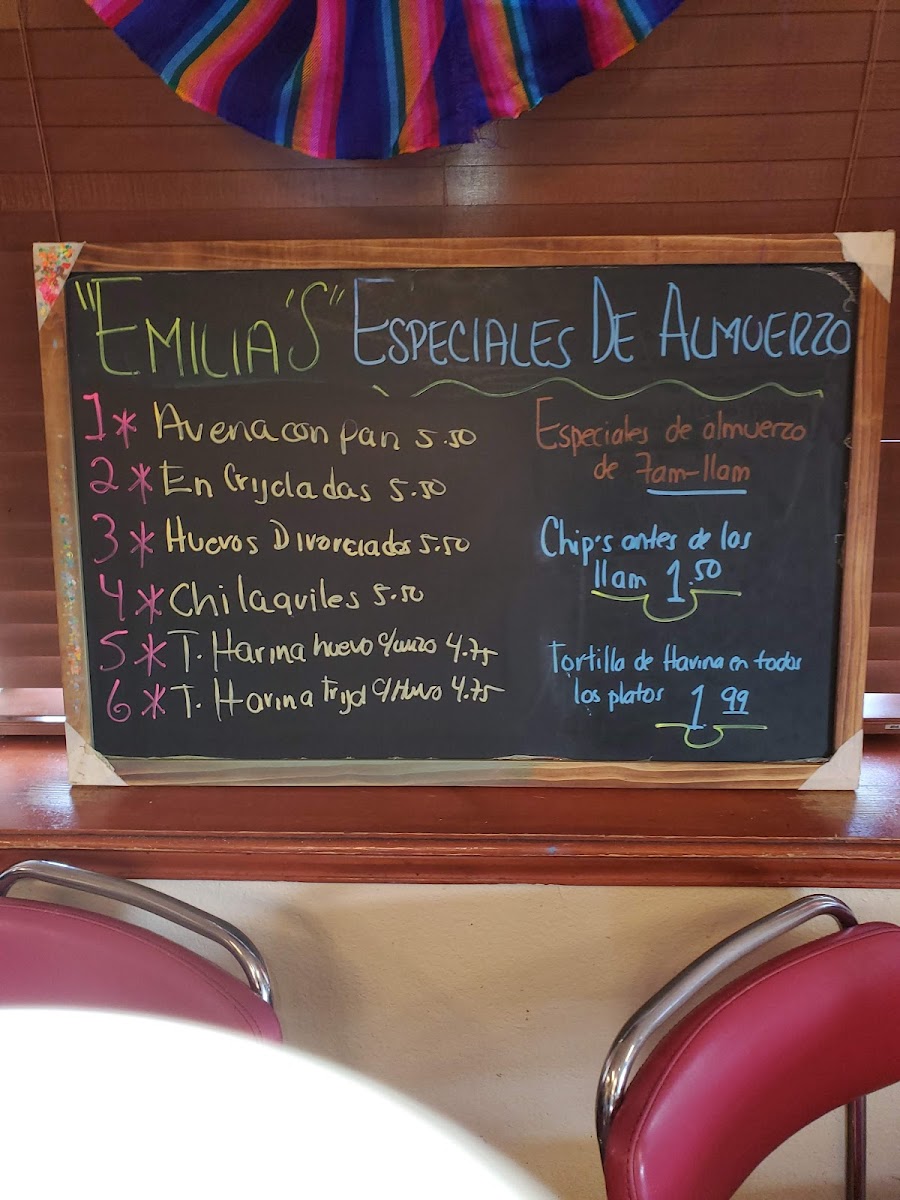 "EMILIA'S" ESPECIALES DE ALMUERZO
1* Avena con pan 5.50
2* En Crijoladas 5.50
3* Huevos Divorciados 5.50
4* Chilaquiles 5.50
5* T. Harina huevo c/ 4.75
6* T. Harina frijol c/Huevo 4.75
Especiales de almuerzo
de 7am-11am
Chip's antes de las
11am 1.50
Tortilla de Harina en todos
los platos 1 99